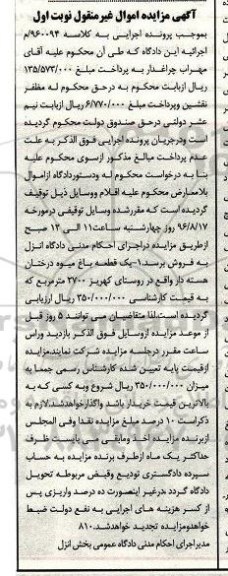 آگهی مزایده اموال غیر منقول نوبت اول
بموجب پرونده اجرایی به کلاسه ۹۶۰۰۹۴/م
اجرائیه این دادگاه که طی آن محکوم علیه آقای
مهراب چراغدار به پرداخت مبلغ ۱۳۵/۵۷۳/۰۰۰
ریال ازبابت محکوم به درحق محکوم له مظفر
نفثین وپرداخت مبلغ ۶/۷۷۰/۰۰۰ ریال ازبابت نیم
عشر دولتی درحق صندوق دولت محکوم گردیده
است ودرجریان پرونده اجرایی فوق الذکر به علت
عدم پرداخت مبالغ مذکور ازسوی محکوم علیه
بنا به درخواست محکوم له ودستوردادگاه ازاموال
بلامعارض محکوم علیه اقدام ووسایل ذیل توقیف
گردیده است که مقررشده وسایل توقیفی درمورخه
۹۶/۸/۱۷ روز چهارشنبه ساعت۱۱ الی ۱۲ صبح
ازطریق مزایده دراجرای احکام مدنی دادگاه انزل
به فروش برسد.۱-یک قطعه باغ میوه درختان
هسته دار واقع در روستای کهریز ۲۷۰۰ مترمربع که
به قیمت کارشناسی ۳۵۰/۰۰۰/۰۰۰ ریال ارزیابی
گردیده است.لذا متقاضیان می توانند ۵ روز قبل
از موعد مزایده ازوسایل فوق الذکر بازدید وراس
ساعت مقرر درجلسه مزایده شرکت نمایند.مزایده
ازقیمت پایه تعیین شده کارشناس رسمی جمعا به
میزان ۳۵۰/۰۰۰/۰۰۰ ریال شروع وبه کسی که به
بالاترین قیمت خریدار باشد واگذارخواهدشد.لازم به
ذکراست ۱۰ درصد مبلغ مزایده نقدا وفی المجلس
ازبرنده مزایده اخذ ومابقی می بایست ظرف
حداکثر یک ماه ازطرف برنده مزایده به حساب
سپرده دادگستری تودیع وقبض مربوطه تحویل
دادگاه گردد.درغیر اینصورت ده درصد واریزی پس
از کسر هزینه های اجرایی به نفع دولت ضبط
خواهدومزایده تجدید خواهدشد.۸۱۰
مدیراجرای احکام مدنی دادگاه عمومی بخش انزل